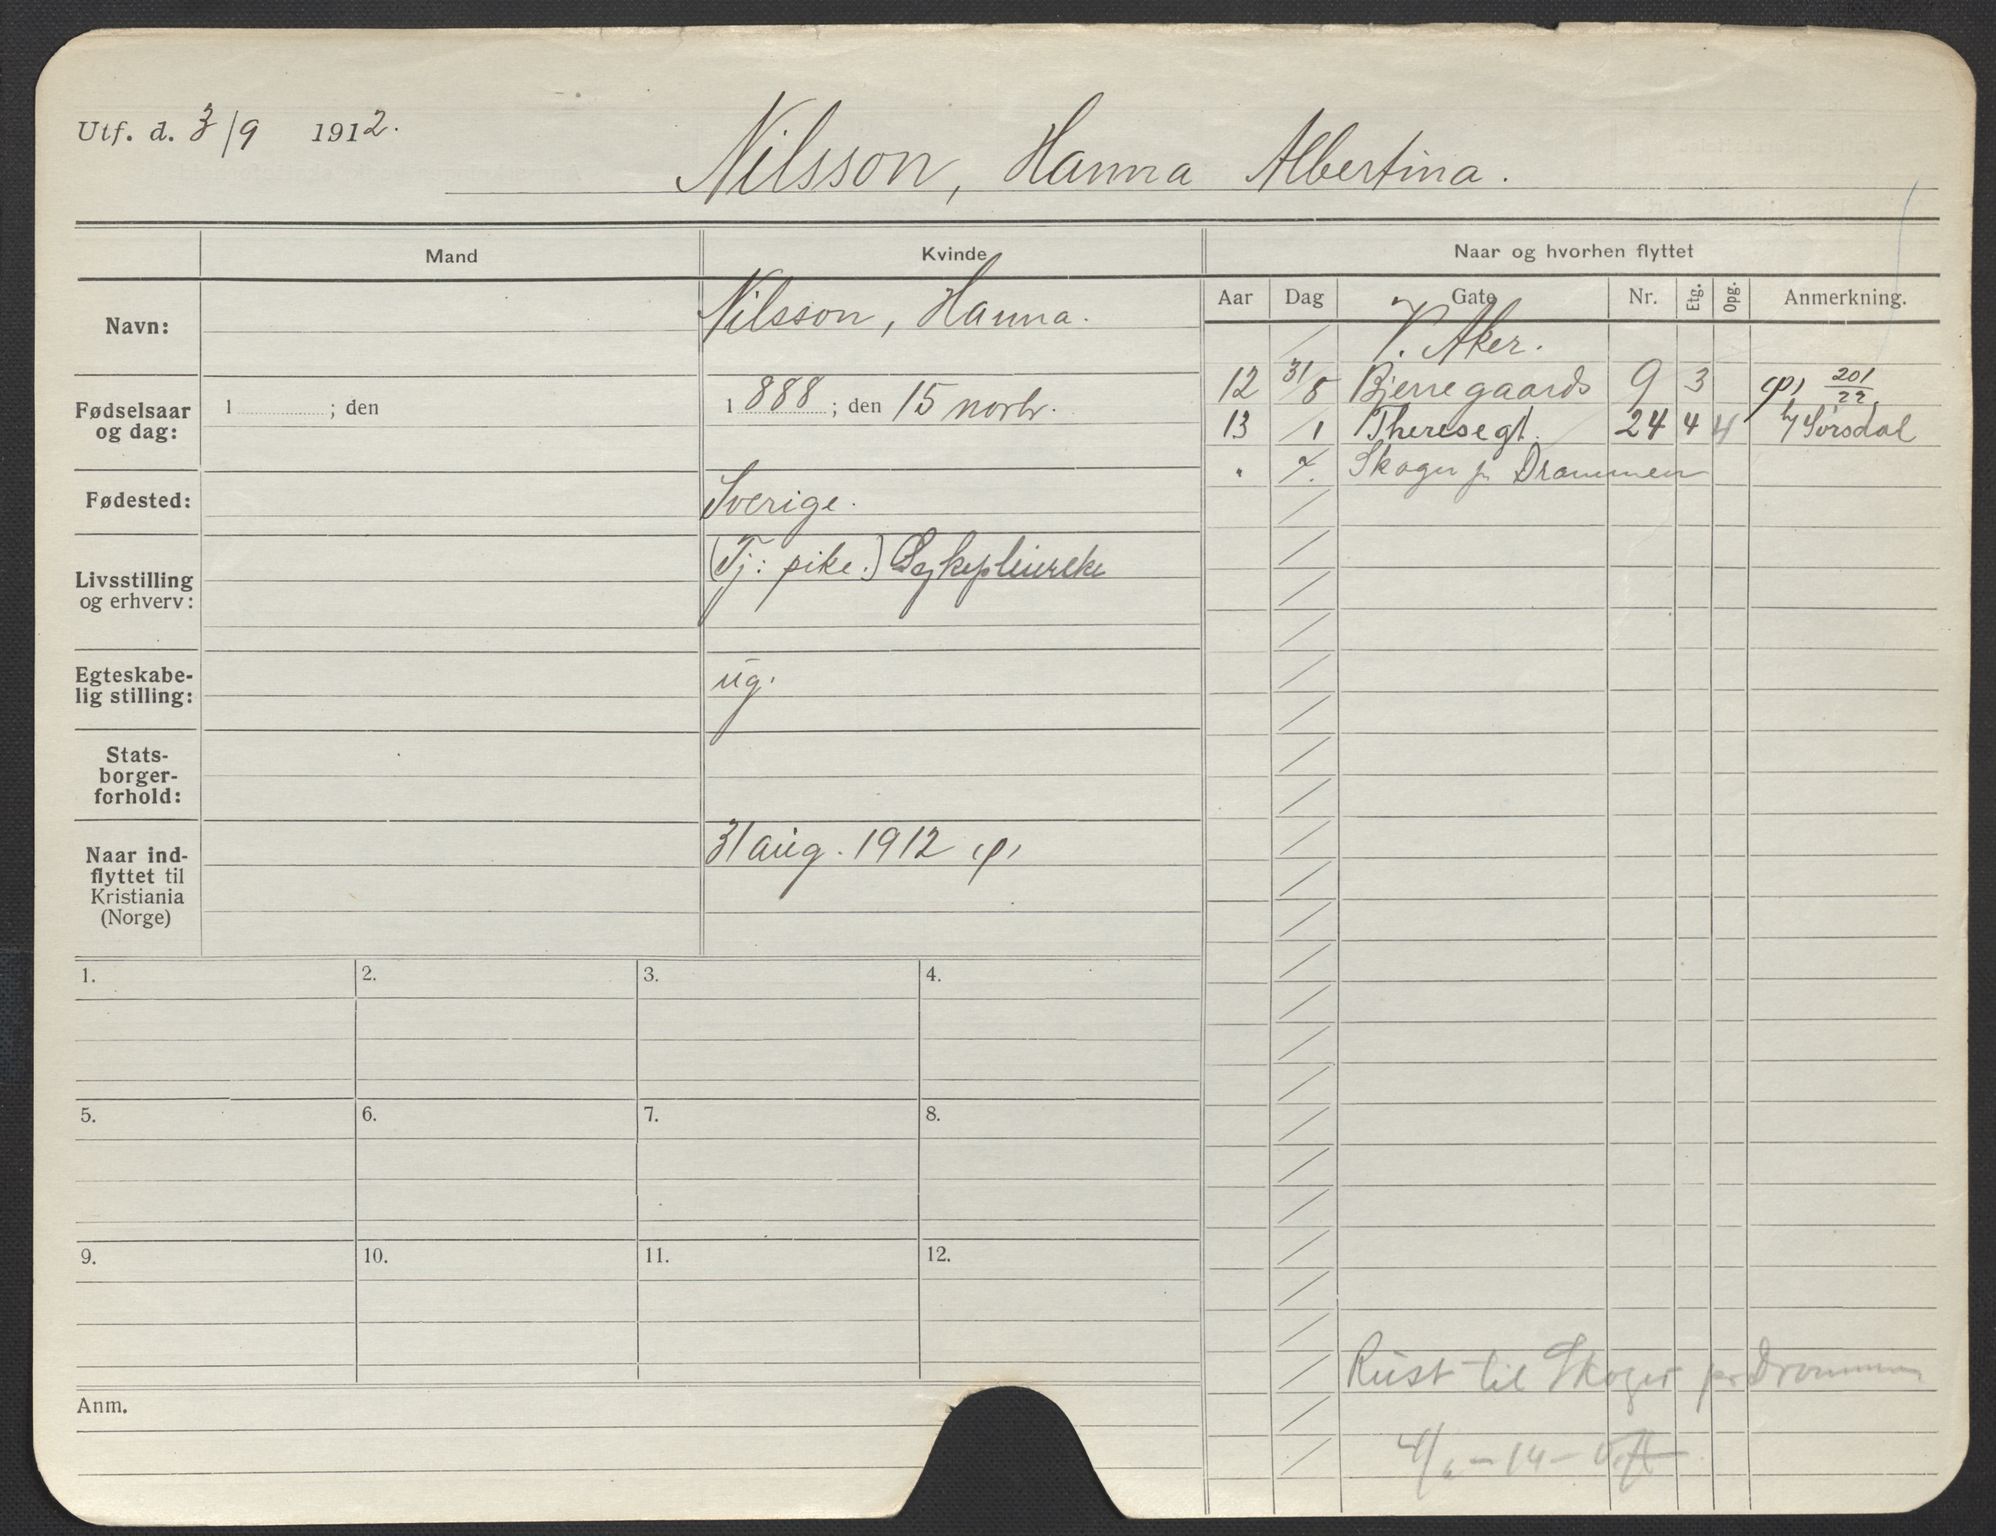 Utf. d. 3/9 1912.
Nilsson, Hanna Albertina.
Mand
Kvinde
Naar og hvorhen flyttet
Navn:
Nilsson, Hanna.
Aar Dag Gate Nr. Etg. Opg. Anmerkning.
V. Aker.
12 31/8 Bjerregaards 9 3 (p) 201/22
13 /1 Theresegt. 24 4 4 h/ Sørsdal
" Skoger pr Drammen
Fødselsaar og dag:
1 ; den
1 888 ; den 15 novbr.
Fødested:
Sverige.
Livsstilling og erhverv:
(Tj: pike.) Sykepleierske
Egteskabe-
lig stilling:
ug.
Stats-
borger-
forhold:
Naar ind-
flyttet til
Kristiania
(Norge)
31 aug. 1912 (p)
1. 2. 3. 4.
5. 6. 7. 8.
9. 10. 11. 12.
Anm.
Reist til Skoger pr Drammen
4/6 - 14 -